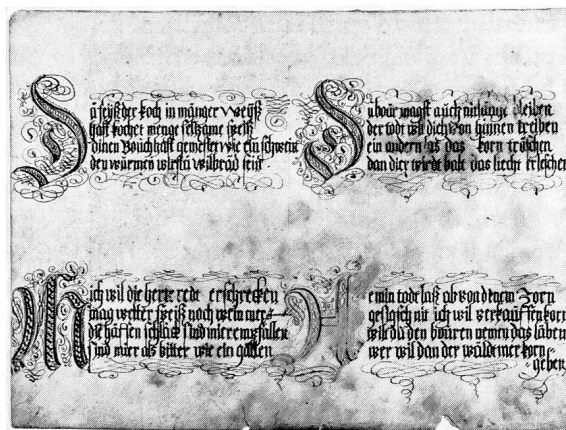 feyß der koch in mänger weyß
hast kochet menge seltzame speiß
dinen Bouch hast gemestet wie ein schwein
den würmen wirstu wilbräd sein
Du bour magst auch nit lange bleiben
der tod wil dich von hinnen treiben
ein andern las das korn tröschen
dan dier wirt balt das liecht erleschen
Mich wil die herte rede erschrecken
mag wetter speiß noch wein mer
die häffen schläck sind mier empfallen
sind mier als bitter wie ein gallen
min tode laß ab von dynem zorn
ich wil verkauffen korn
wil du den bouren nemen das läben
wer wil dan der wäldt mer korn
geben